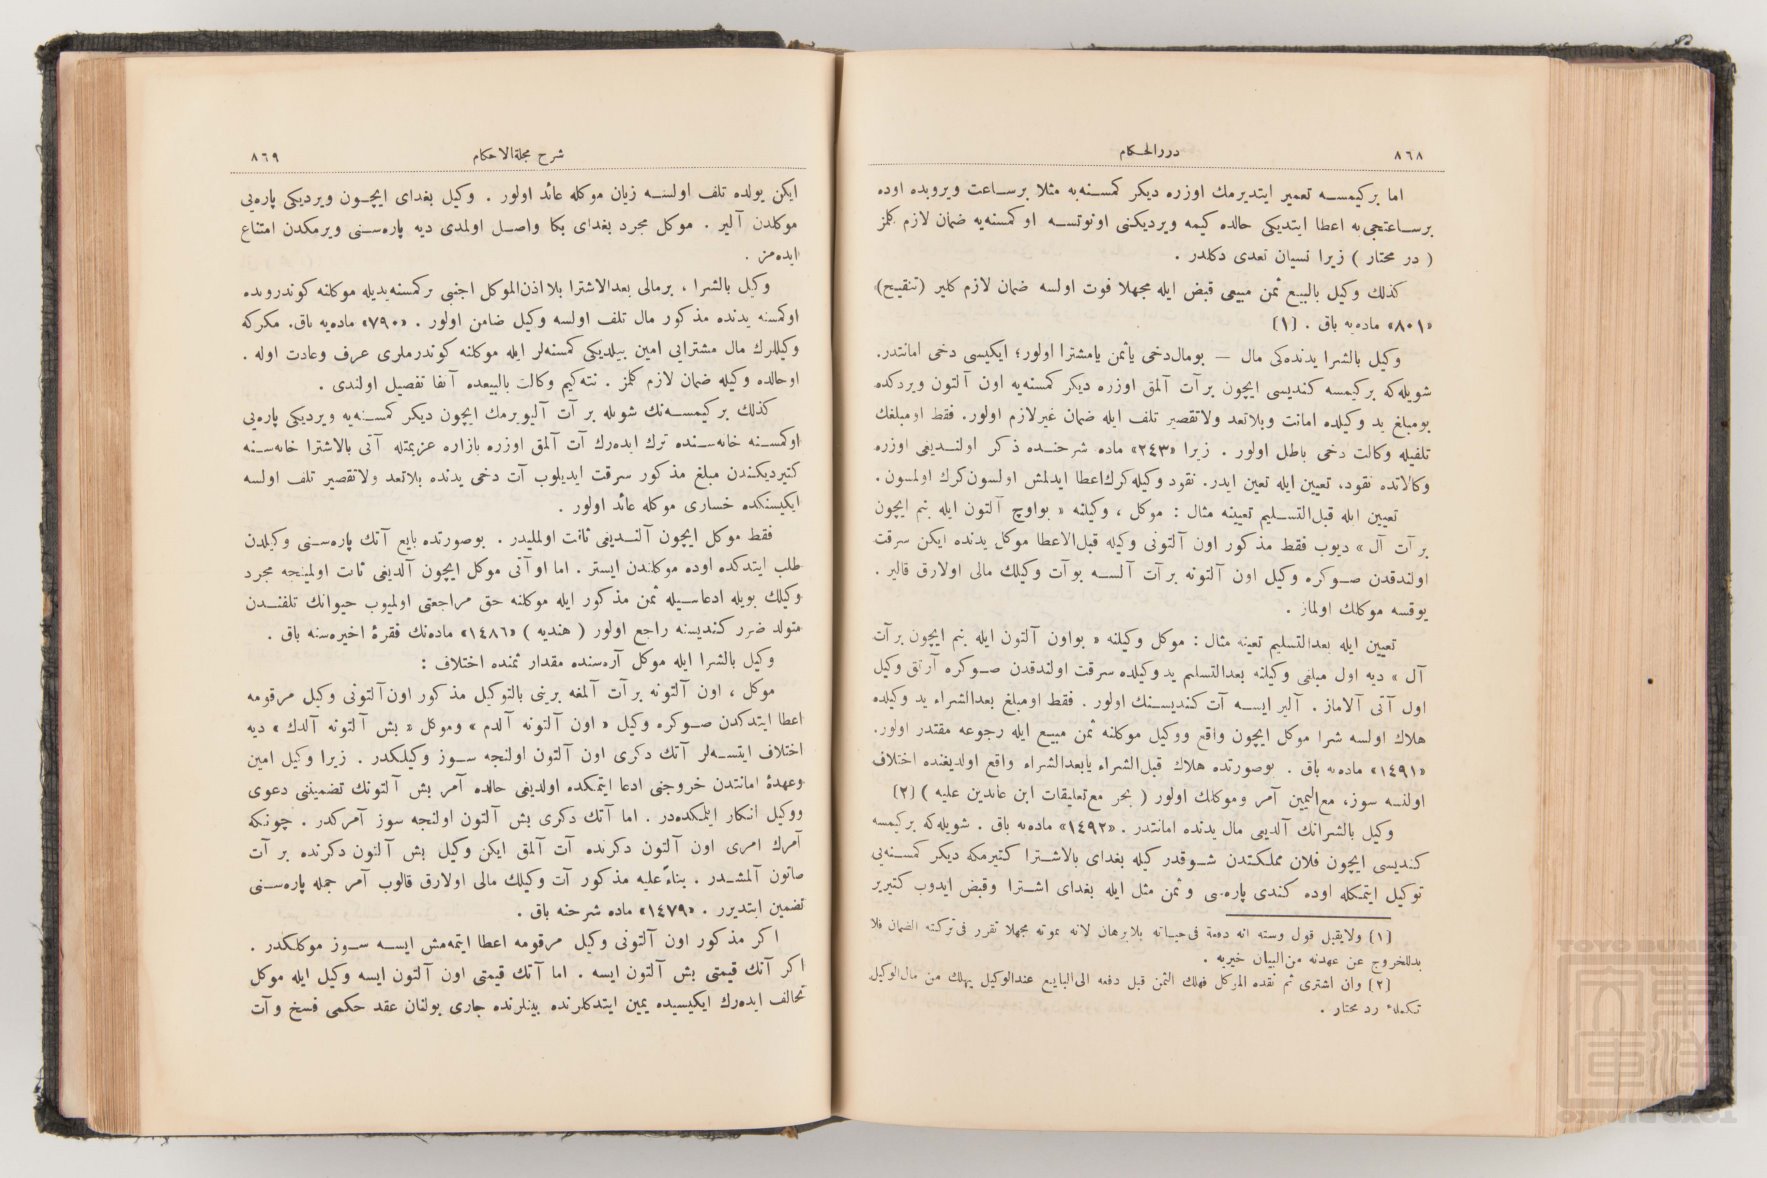 ٨٦٨
دررالحكام
اما بركيمسه تعمير ايتديرمك اوزره ديكر كمسنه‌يه مثلا برساعت ويروبده اوده
برساعتجى‌يه اعطا ايتديكى حالده كيمه ويرديكنى اونوتسه اوكمسنه‌يه ضمان لازم كلمز
( در مختار ) زيرا نسيان تعدى دكلدر .
كذلك وكيل بالبيع ثمن مبيعى قبض ايله مجهلا فوت اولسه ضمان لازم كلير (تنقيح)
«٨٠١» ماده‌يه باق . [١]
وكيل بالشرا يدنده‌كى مال — بومال‌دخى ياثمن يامشترا اولور؛ ايكيسى دخى امانتدر.
شويله‌كه بركيمسه كنديسى ايچون برآت آلمق اوزره ديكر كمسنه‌يه اون آلتون ويردكده
بومبلغ يد وكيلده امانت وبلاتعد ولاتقصير تلف ايله ضمان غيرلازم اولور. فقط اومبلغك
تلفيله وكالت دخى باطل اولور . زيرا «٢٤٣» ماده شرحنده ذكر اولنديغى اوزره
وكالاتده نقود، تعيين ايله تعين ايدر. نقود وكيله‌كرك‌اعطا ايدلمش اولسون‌كرك اولمسون.
تعيين ايله قبل‌التسليم تعيينه مثال : موكل ، وكيلنه « بواوچ آلتون ايله بنم ايچون
برآت آل » ديوب فقط مذكور اون آلتونى وكيله قبل‌الاعطا موكل يدنده ايكن سرقت
اولندقدن صوكره وكيل اون آلتونه برآت آلسه بوآت وكيلك مالى اولارق قالير .
يوقسه موكلك اولماز .
تعيين ايله بعدالتسليم تعينه مثال : موكل وكيلنه « بواون آلتون ايله بنم ايچون برآت
آل » ديه اول مبلغى وكيلنه بعدالتسليم يد وكيلده سرقت اولندقدن صوكره آرتق وكيل
اول آتى آلاماز . آلير ايسه آت كنديسنك اولور . فقط اومبلغ بعدالشراء يد وكيلده
هلاك اولسه شرا موكل ايچون واقع ووكيل موكلنه ثمن مبيع ايله رجوعه مقتدر اولور.
«١٤٩١» ماده‌يه باق . بوصورتده هلاك قبل‌الشراء يابعدالشراء واقع اولديغنده اختلاف
اولنسه سوز، مع‌اليمين آمر وموكلك اولور ( بحر مع‌تعليقات ابن عابدين عليه ) [٢]
وكيل بالشرانك آلديغى مال يدنده امانتدر . «١٤٩٢» ماده‌يه باق . شويله‌كه بركيمسه
كنديسى ايچون فلان مملكتدن شوقدر كيله بغداى بالاشترا كتيرمكه ديكر كمسنه‌يى
توكيل ايتمكله اوده كندى پاره‌سى و ثمن مثل ايله بغداى اشترا وقبض ايدوب كتيرير
[١] ولايقبل قول وسته انه دفعة فى‌حياته بلابرهان لانه بموته مجهلا تقرر فى‌تركته الضمان فلا
بدللخروج عن عهدته من‌البيان خيريه .
[٢] وان اشترى ثم نقده الموكل فهلك الثمن قبل دفعه الى‌البايع عندالوكيل يهلك من مال‌الوكيل
تكملهٔ رد محتار .
شرح مجلةالاحكام
٨٦٩
ايكن يولده تلف اولسه زيان موكله عائد اولور . وكيل بغداى ايچون ويرديكى پاره‌يى
موكلدن آلير . موكل مجرد بغداى بكا واصل اولمدى ديه پاره‌سنى ويرمكدن امتناع
ايده‌مز .
وكيل بالشرا ، برمالى بعدالاشترا بلااذن‌الموكل اجنبى بركمسنه‌يديله موكلنه كوندروبده
اوكمسنه يدنده مذكور مال تلف اولسه وكيل ضامن اولور . «٧٩٠» ماده‌يه باق. مكركه
وكيللرك مال مشترايى امين بيلديكى كمسنه‌لر ايله موكلنه كوندرملرى عرف وعادت اوله .
اوحالده وكيله ضمان لازم كلمز . نته‌كيم وكالت بالبيعده آنفا تفصيل اولندى .
كذلك بركيمسه‌نك شويله بر آت آليويرمك ايچون ديكر كمسنه‌يه ويرديكى پاره‌يى
اوكمسنه خانه‌سنده ترك ايده‌رك آت آلمق اوزره بازاره عزيمتله آتى بالاشترا خانه‌سنه
كتيرديكندن مبلغ مذكور سرقت ايديلوب آت دخى يدنده بلاتعد ولاتقصير تلف اولسه
ايكيسنكده خسارى موكله عائد اولور .
فقط موكل ايچون آلنديغى ثابت اولمليدر . بوصورتده بايع آتك پاره‌سنى وكيلدن
طلب ايتدكده اوده موكلندن ايستر . اما اوآتى موكل ايچون آلديغى ثابت اولمينجه مجرد
وكيلك بويله ادعاسيله ثمن مذكور ايله موكلنه حق مراجعتى اولميوب حيوانك تلفندن
متولد ضرر كنديسنه راجع اولور ( هنديه ) «١٤٨٦» ماده‌نك فقرهٔ اخيره‌سنه باق .
وكيل بالشرا ايله موكل آره‌سنده مقدار ثمنده اختلاف :
موكل ، اون آلتونه برآت آلمغه برينى بالتوكيل مذكور اون‌آلتونى وكيل مرقومه
اعطا ايتدكدن صوكره وكيل « اون آلتونه آلدم » وموكل « بش آلتونه آلدك » ديه
اختلاف ايتسه‌لر آتك دكرى اون آلتون اولنجه سوز وكيلكدر . زيرا وكيل امين
وعهدهٔ امانتدن خروجنى ادعا ايتمكده اولديغى حالده آمر بش آلتونك تضمينى دعوى
ووكيل انكار ايلمكده‌در . اما آتك دكرى بش آلتون اولنجه سوز آمركدر . چونكه
آمرك امرى اون آلتون دكرنده آت آلمق ايكن وكيل بش آلتون دكرنده بر آت
صاتون آلمشدر . بناءً‌عليه مذكور آت وكيلك مالى اولارق قالوب آمر جمله پاره‌سنى
تضمين ايتديرر . «١٤٧٩» ماده شرحنه باق .
اكر مذكور اون آلتونى وكيل مرقومه اعطا ايتمه‌مش ايسه سوز موكلكدر .
اكر آتك قيمتى بش آلتون ايسه . اما آتك قيمتى اون آلتون ايسه وكيل ايله موكل
تحالف ايده‌رك ايكيسيده يمين ايتدكلرنده بينلرنده جارى بولنان عقد حكمى فسخ و آت
TOYO BUNKO